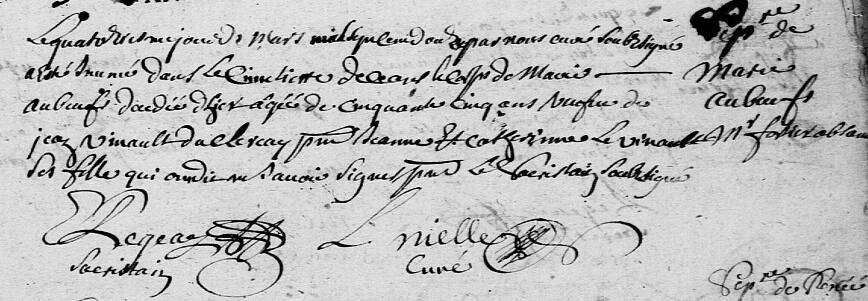 Le quatorziesme jour de Mars mil sept cent douze par nous curé soubsigné
a esté inumé dans le Cimetierre de ceans le corps de Marie
aubeufs decedée d'hier agée de cinquante cinq ans veufve de
jean vinault du clercay pnt Jeanne et Catherinne le vinault
ses fille qui ont dit ne scavoir signer pnt le Sacristain soubsigné
Sep.re de
Marie
aubeufs
Legeay
Sacristain
L nielle
Curé
Sep.re de Renée